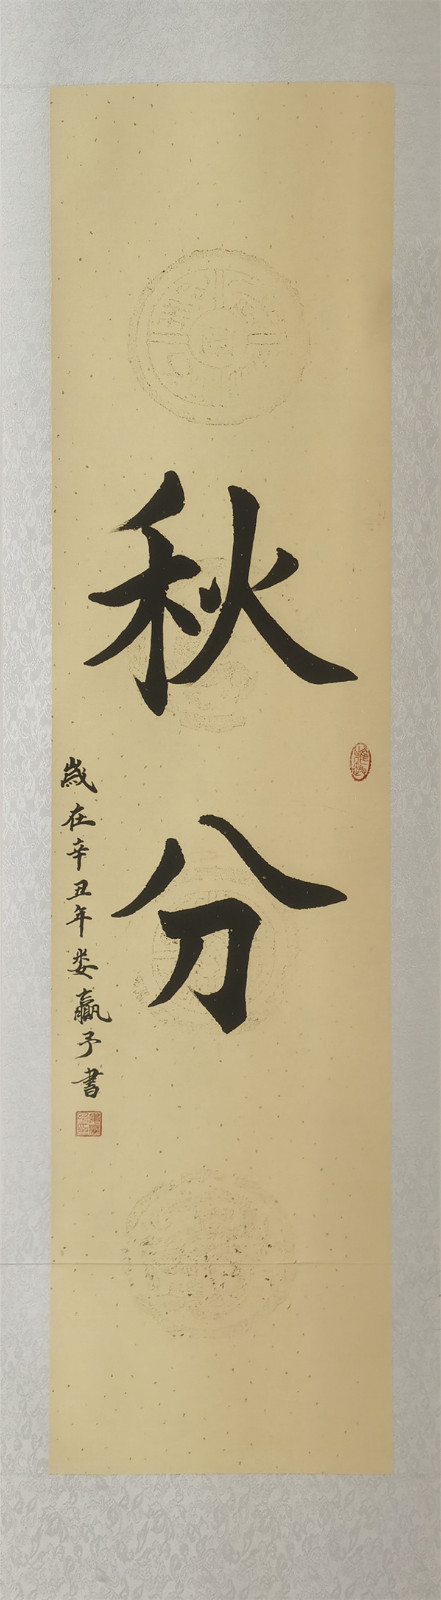 秋分
歲在辛丑年娄赢予書